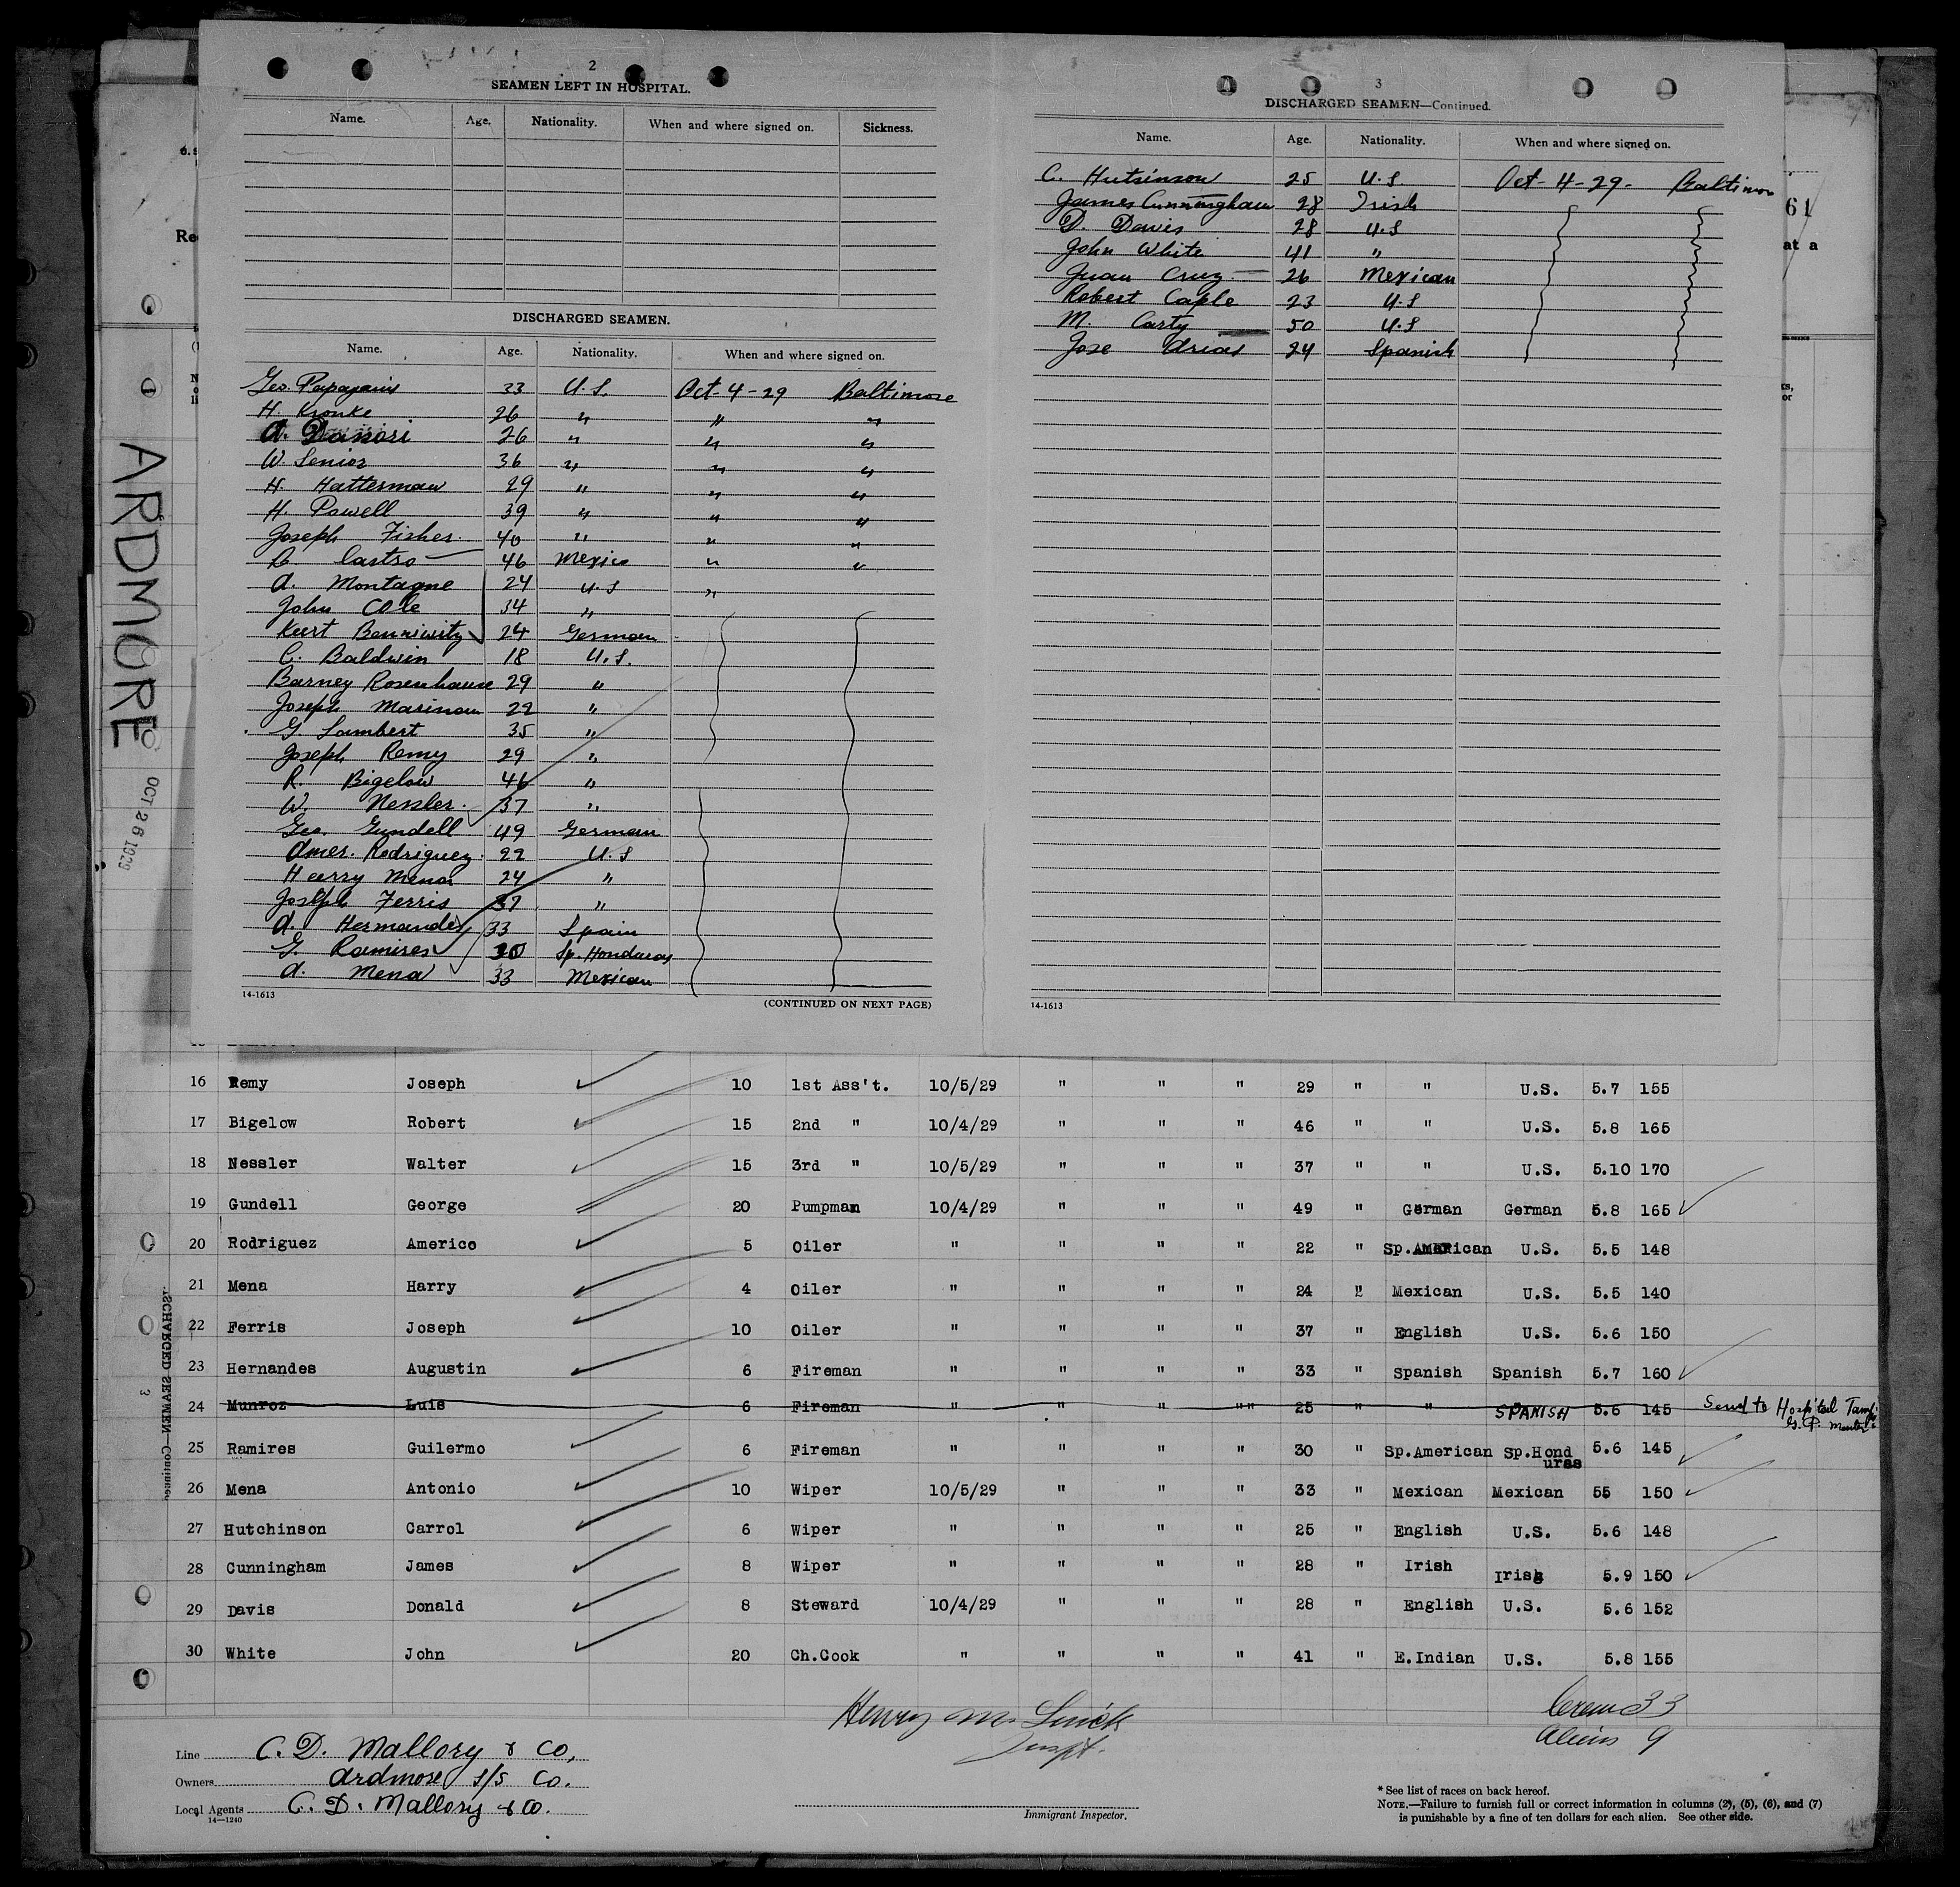 2
SEAMEN LEFT IN HOSPITAL.
Name. Age. Nationality. When and where signed on. Sickness.
DISCHARGED SEAMEN.
Name. Age. Nationality. When and where signed on.
Geo. 33 U.S. Oct-4-29 Baltimore
H. Kronke 26 " " "
A. Danori 26 " " "
W. Senior 36 " " "
H. Hatterman 29 " " "
H. Powell 39 " " "
Joseph Fisher. 40 " " "
Castro 46 Mexico " "
A. Montagne 24 U.S "
John Cole 34 "
Kurt 24 German
C. Baldwin 18 U.S.
Barney Rosenhause 29 "
Joseph 29 "
G. Lambert 35 "
Joseph Remy 29 "
R. Bigelow 46 "
W. Nessler. 37 "
Geo. Gundell 49 German
Amer. Rodriguez. 22 U.S
Harry Mena 24 "
Joseph Ferris 37 "
A. Hernandes 33 Spain
G. Ramires 30 Sp. Honduras
A. Mena 33 Mexican
14-1613 (CONTINUED ON NEXT PAGE)
3
DISCHARGED SEAMEN—Continued.
Name. Age. Nationality. When and where signed on.
C. Hutsinson 25 U.S. Oct-4-29- Baltimore
James Cunningham 28 Irish
D. Davis 28 U.S
John White 41 "
Juan Cruz 26 Mexican
Robert Caple 23 U.S
M. Carty 50 U.S
Jose Arias 24 Spanish
14-1613
61
at a
Re
ARDMORE
OCT 26 1929
SCHARGED SEAMEN—Continued
3
16 Remy Joseph 10 1st Ass't. 10/5/29 " " " 29 " " U.S. 5.7 155
17 Bigelow Robert 15 2nd " 10/4/29 " " " 46 " " U.S. 5.8 165
18 Nessler Walter 15 3rd " 10/5/29 " " " 37 " " U.S. 5.10 170
19 Gundell George 20 Pumpman 10/4/29 " " " 49 " German German 5.8 165
20 Rodriguez Americo 5 Oiler " " " " 22 " Sp.American U.S. 5.5 148
21 Mena Harry 4 Oiler " " " " 24 " Mexican U.S. 5.5 140
22 Ferris Joseph 10 Oiler " " " " 37 " English U.S. 5.6 150
23 Hernandes Augustin 6 Fireman " " " " 33 " Spanish Spanish 5.7 160
24 Munroz Luis 6 Fireman " " " "" 25 " " SPANISH 5.6 145 Send to Hospital
25 Ramires Guilermo 6 Fireman " " " " 30 " Sp.American Sp.Hond uras 5.6 145
26 Mena Antonio 10 Wiper 10/5/29 " " " 33 " Mexican Mexican 55 150
27 Hutchinson Carrol 6 Wiper " " " " 25 " English U.S. 5.6 148
28 Cunningham James 8 Wiper " " " " 28 " Irish Irish 5.9 150
29 Davis Donald 8 Steward 10/4/29 " " " 28 " English U.S. 5.6 152
30 White John 20 Ch.Cook " " " " 41 " E.Indian U.S. 5.8 155
Crew 33
Aliens 9
Henry M.
Inspt.
Immigrant Inspector.
Line C. D. Mallory & Co,
Owners Ardmore S/S Co.
Local Agents C. D. Mallory & Co.
14—1240
* See list of races on back hereof.
NOTE.—Failure to furnish full or correct information in columns (2), (5), (6), and (7)
is punishable by a fine of ten dollars for each alien. See other side.